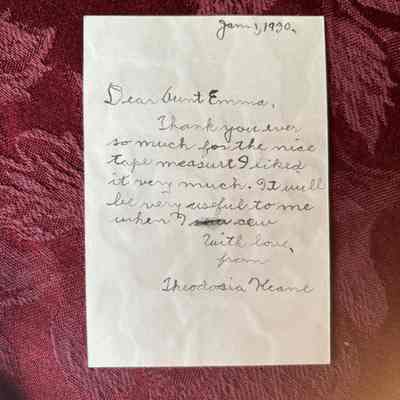 Jan 1, 1930.
Dear Aunt Emma,
Thank you ever
so much for the nice
tape measure I liked
it very much. It will
be very useful to me
when I sew
With love,
from
Theodosia Keane